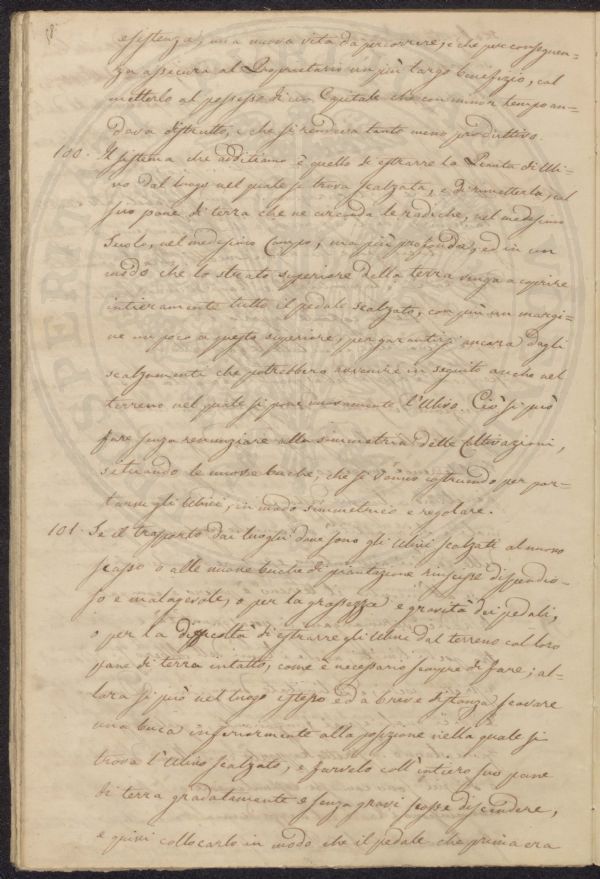 esistenza, una nuova vita da percorrere; e che per conseguen=
za assicura al Proprietario un più largo benefizio, col
metterlo al possesso di un Capitale che con minor tempo an=
dava distrutto, e che si rendeva tanto meno produttivo.
100. Il sistema che additiamo è quello di estrarre la Pianta di Uli=
vo dal luogo nel quale si trova scalzata, e di rimetterla, col
suo pane di terra che ne circonda le radiche, nel medesimo
suolo, nel medesimo Campo, ma più profonda, ed in un
modo che lo strato superiore della terra venga a coprire
intieramente tutto il pedale scalzato, con più un margi=
ne un poco a questo superiore, per garantirsi ancora dagli
scalzamenti che potrebbero avvenire in seguito anche nel
terreno nel quale si pone nuovamente l'Ulivo. Ciò si può
fare senza renunziare alla simmetria delle Coltivazioni,
situando le nuove buche, che si vanno costruendo per por=
tarvi gli Ulivi, in modo simmetrico e regolare.
101. Se il trasporto dai luoghi dove sono gli Ulivi scalzati al nuovo
scasso o alle nuove buche di piantazione riuscisse dispendio=
so e malagevole, o per la grossezza e gravità dei pedali,
o per la difficoltà di estrarre gli Ulivi dal terreno col loro
pane di terra intatto, come è necessario sempre di fare; al=
lora si può nel luogo istesso ed a breve distanza scavare
una buca inferiormente alla posizione nella quale si
trova l'Ulivo scalzato, e farvelo coll'intiero suo pane
di terra gradatamente e senza gravi scosse discendere,
e quivi collocarlo in modo che il pedale che prima era